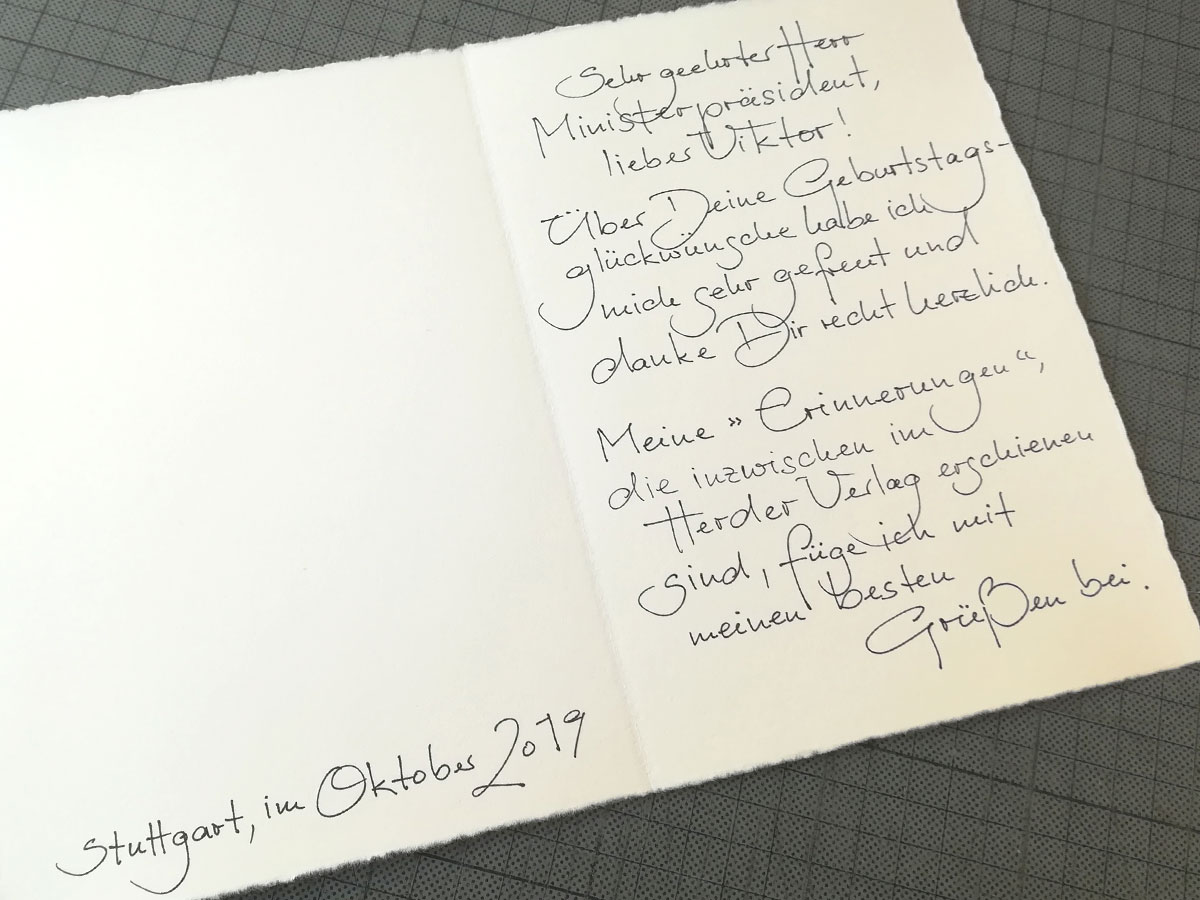 Sehr geehrter Herr
Ministerpräsident,
lieber Viktor!
Über Deine Geburtstags-
glückwünsche habe ich
mich sehr gefreut und
danke Dir recht herzlich.
Meine »Erinnerungen“,
die inzwischen im
Herder Verlag erschienen
sind, füge ich mit
meinen besten
Grüßen bei.
Stuttgart, im Oktober 2019